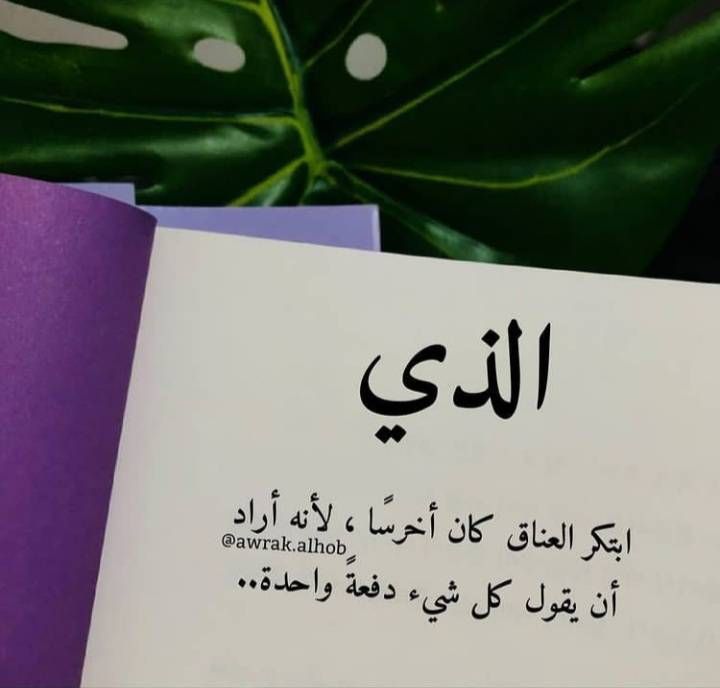 الذي
ابتكر العناق كان أخرسًا ، لأنه أراد
@awrak.alhob
أن يقول كل شيء دفعةً واحدة..